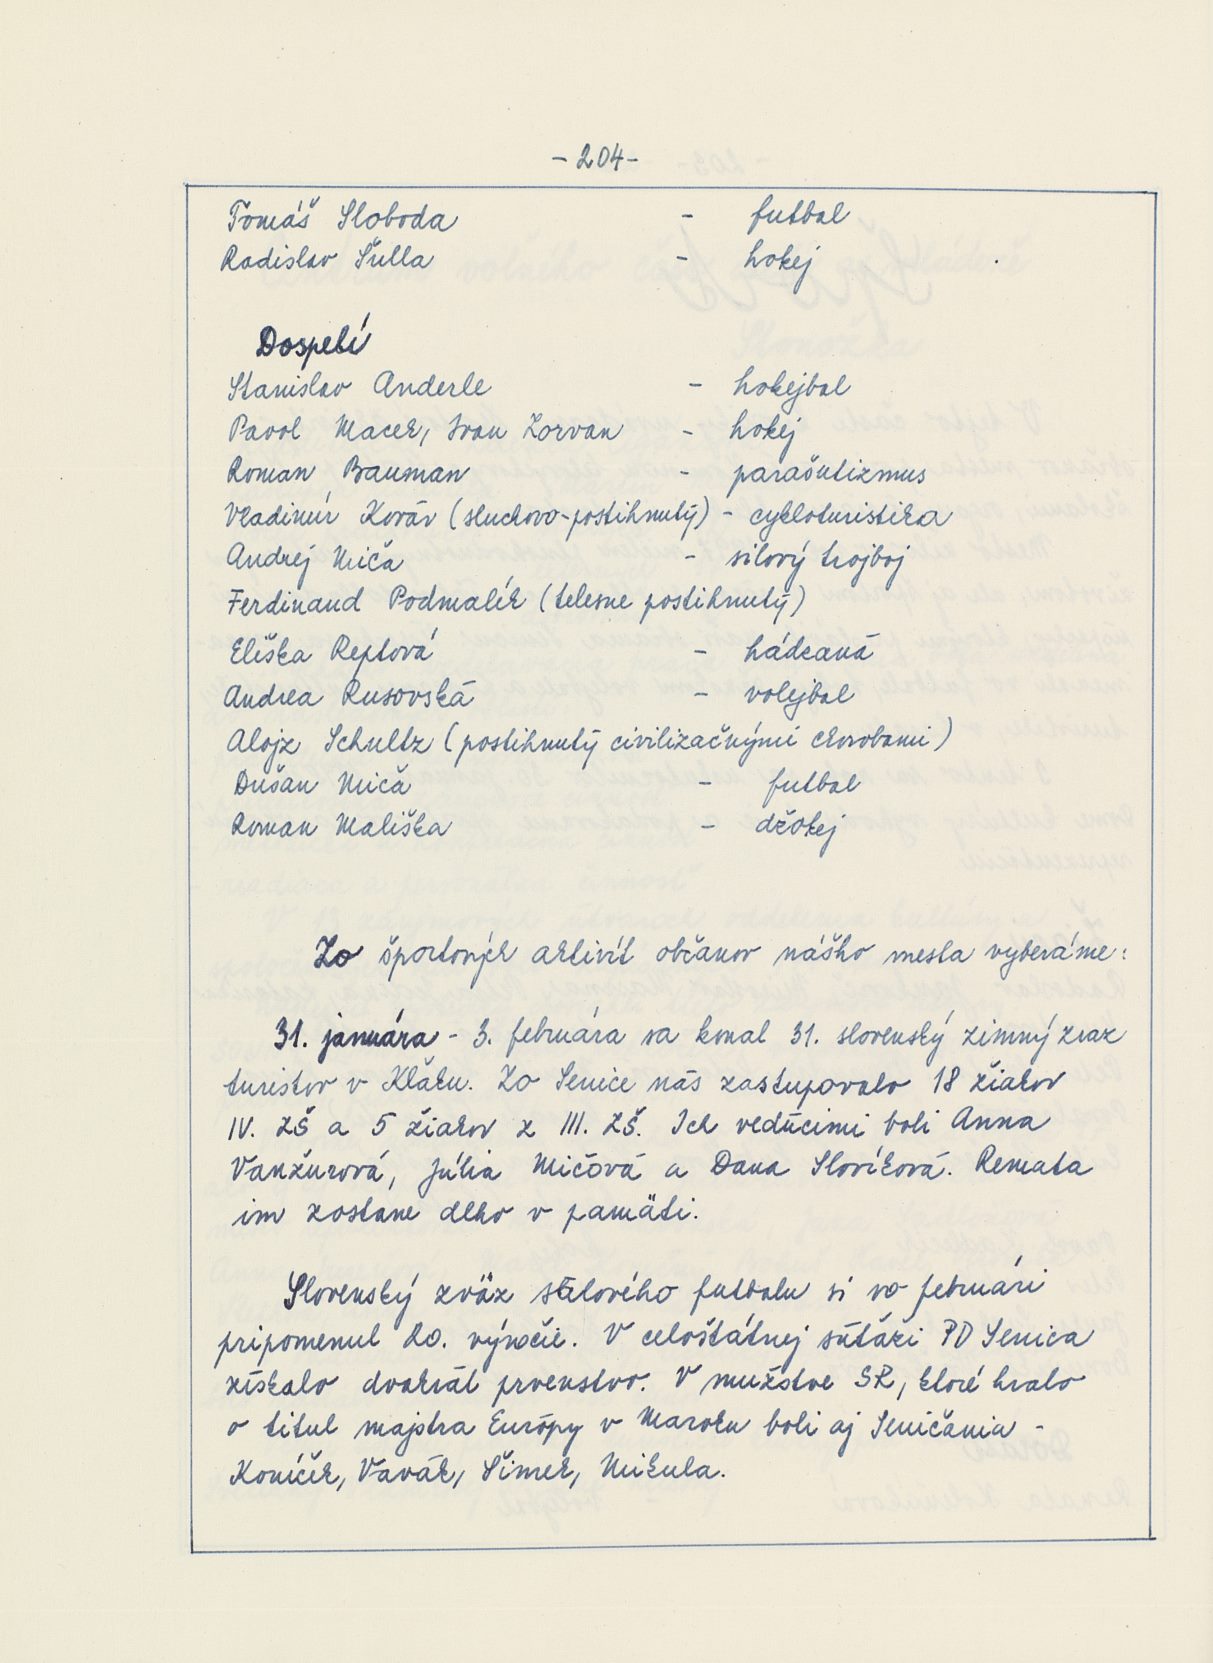 -204-
Tomáš Sloboda - futbal
Radislav Šulla - hokej
Dospelí
Stanislav Anderle - hokejbal
Pavol Macek, Ivan Zorvan - hokej
Roman Bauman - parašutizmus
Vladimír Kovár (sluchovo-postihnutý) - cykloturistika
Andrej Miča - silový trojboj
Ferdinand Podmalík (telesne postihnutý)
Eliška Reptová - hádzaná
Andrea Rusovská - volejbal
Alojz Schultz (postihnutý civilizačnými chorobami)
Dušan Mičа - futbal
Roman Mališka - džokej
Zo športových aktivít občanov nášho mesta vyberáme:
31. januára - 3. februára sa konal 31. slovenský zimný zraz
turistov v Kľaku. Zo Senice nás zastupovalo 18 žiakov
IV. ZŠ a 5 žiakov z III. ZŠ. Ich vedúcimi boli Anna
Vanžurová, Júlia Mičová a Dana Slovíková. Remata
im zostane dlho v pamäti.
Slovenský zväz sálového futbalu si vo februári
pripomenul 20. výročie. V celoštátnej súťaži PD Senica
získalo dvakrát prvenstvo. V mužstve SR, ktoré hralo
o titul majstra Európy v Maroku boli aj Seničania -
Koníček, Vavák, Šimek, Mikula.